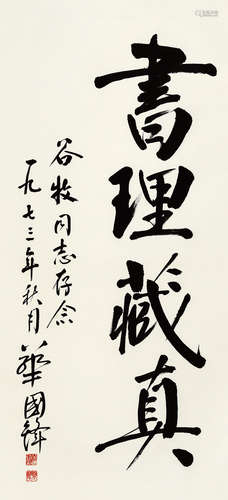 書理藏真
谷牧同志存念
一九七三年秋月
華國鋒